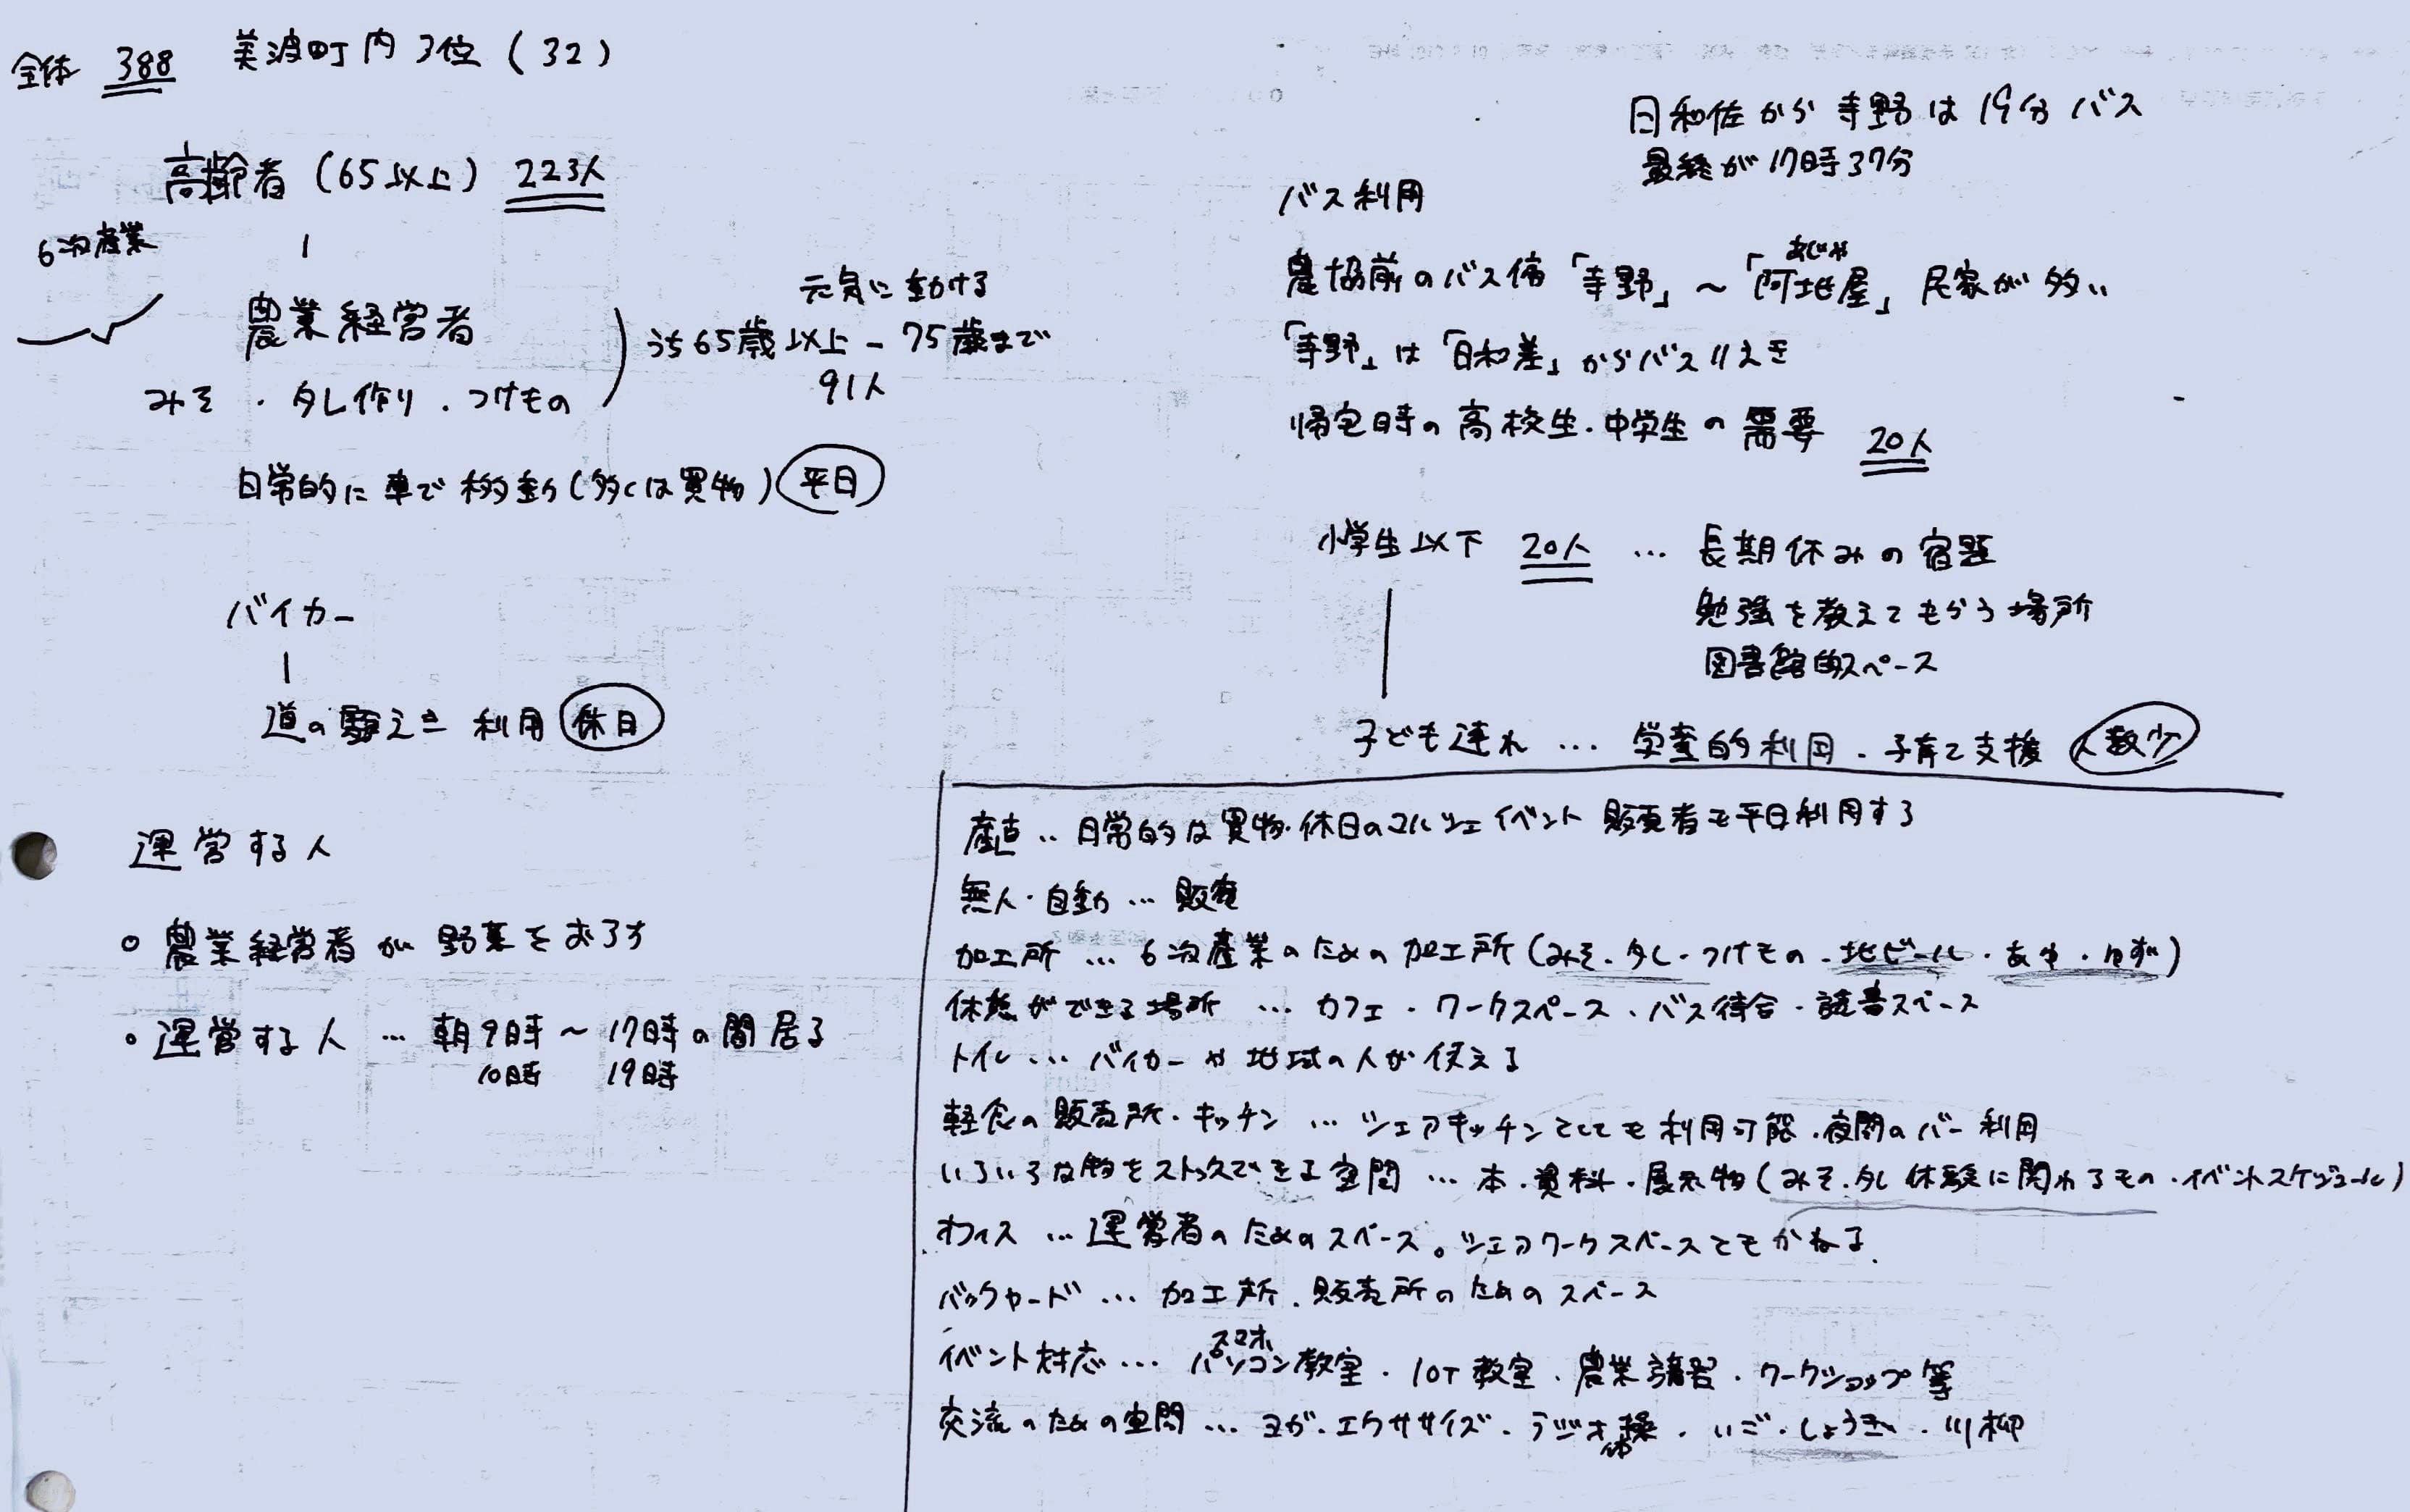 全体 388 美波町内3位(32)
高齢者(65以上) 223人
6次産業
農業経営者
みそ・タレ作り・つけもの
元気に動ける
うち65歳以上-75歳まで
91人
日常的に車で移動(多くは買物) 平日
バイカー
道の駅 利用 休日
運営する人
○ 農業経営者が野菜をおろす
○ 運営する人 … 朝9時〜17時の間居る
10時 19時
日和佐から寺野は19分バス
最終が17時37分
バス利用
あじや
農協前のバス停「寺野」〜「阿地屋」民家が多い
「寺野」は「日和差」からバス
帰宅時の高校生・中学生の需要 20人
小学生以下 20人 … 長期休みの宿題
勉強を教えてもらう場所
図書館的スペース
子ども連れ … 学童的利用・子育て支援 人数少
産直‥日常的な買物・休日のマルシェイベント 販売者も平日利用する
無人・自動 … 販売
加工所 … 6次産業のための加工所(みそ・タレ・つけもの・地ビール・あゆ・ゆず)
休憩ができる場所 … カフェ・ワークスペース・バス待合・読書スペース
トイレ … バイカーや地域の人が使える
軽食の販売所・キッチン … シェアキッチンとしても利用可能・夜間のバー利用
いろいろな物をストックできる空間 … 本・資料・展示物(みそ・タレ体験に関わるもの・イベントスケジュール)
オフィス … 運営者のためのスペース。シェアワークスペースともかねる
バックヤード … 加工所・販売所のためのスペース
スマホ
イベント対応 … パソコン教室・IOT教室・農業講習・ワークショップ等
交流のための空間 … ヨガ・エクササイズ・ラジオ体操・いご・しょうぎ・川柳